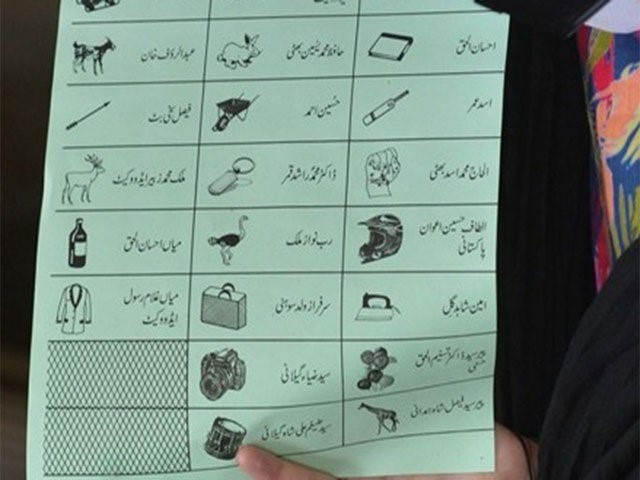 احسان الحق
حافظ محمد یٰسین بھٹی
عبدالرؤف خان
اسد عمر
حُسین احمد
فیصل سخی بٹ
الحاج محمد اسد بھٹی
ڈاکٹر محمد راشد قمر
ملک محمد زبیر ایڈووکیٹ
الطاف حسین اعوان
پاکستانی
رب نواز ملک
میاں احسان الحق
امین شاہد گل
سرفراز ولد سوہنی
میاں غلام رسول
ایڈووکیٹ
پیر سید ڈاکٹر تسنیم الحق
سید ضیاء گیلانی
پیر سید فیصل شاہ ہمدانی
سید علی شاہ گیلانی